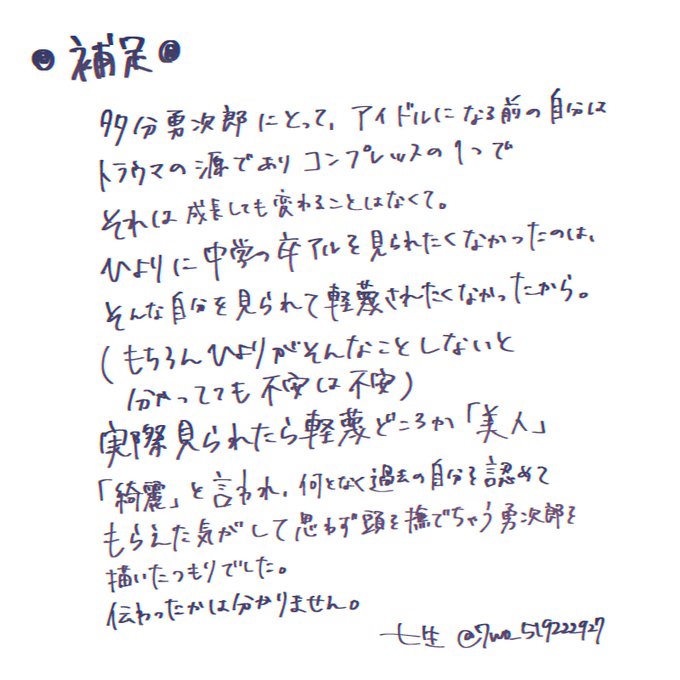 補足
多分勇次郎にとって、アイドルになる前の自分は
トラウマの源であり コンプレッスの1つで
それは成長しても変わることはなくて。
ひよりに中学の卒アルを見られたくなかったのは、
そんな自分を見られて軽蔑されたくなかったから。
(もちろんひよりがそんなことしないと
分かってても不安は不安)
実際見られたら軽蔑どころか「美人」
「綺麗」と言われ、何となく過去の自分を認めて
もらえた気がして思わず頭を撫でちゃう勇次郎を
描いたつもりでした。
伝わったかは分かりません。
七生 @7wo_519222927